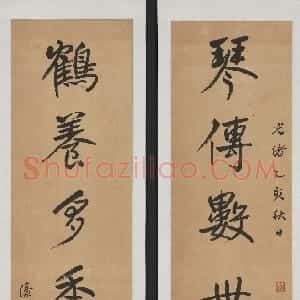 琴傳數世
光緒乙亥秋日
鶴養多
Shufaziliao.com